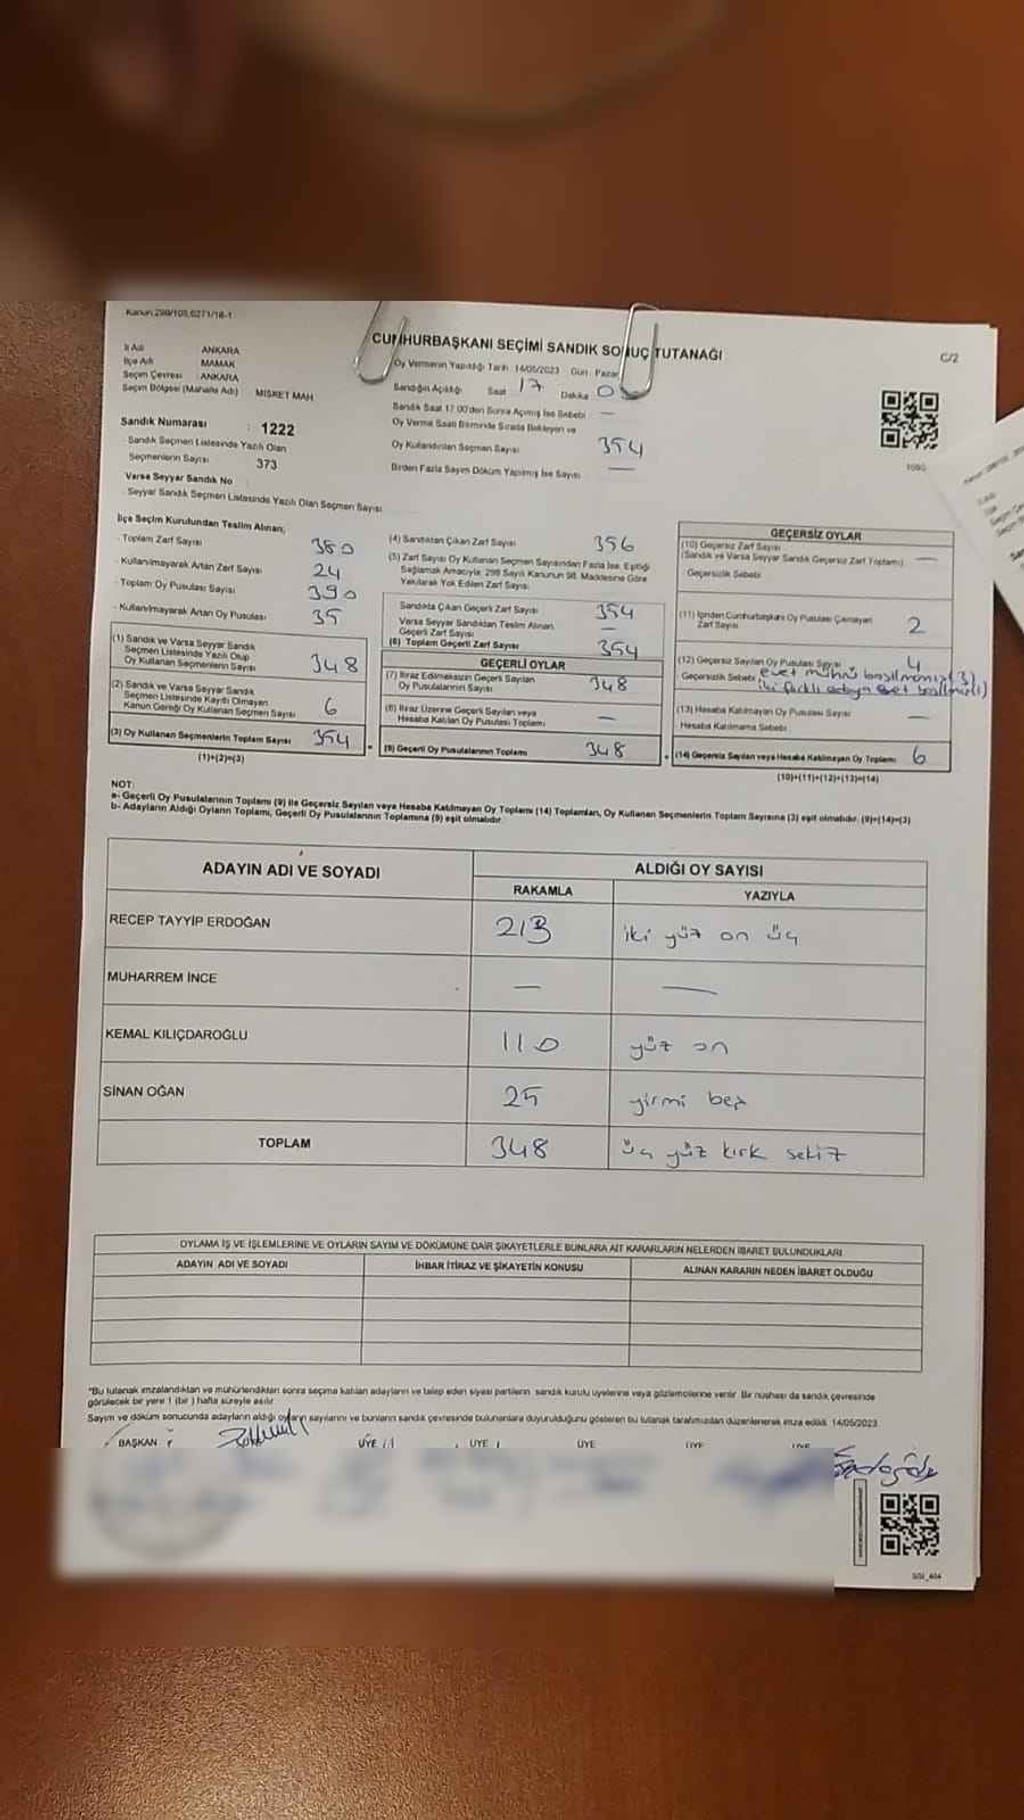 Kanun 298/105,6271/18-1
CUMHURBAŞKANI SEÇİMİ SANDIK SONUÇ TUTANAĞI
C/2
İl Adı ANKARA
İlçe Adı MAMAK
Seçim Çevresi : ANKARA
Seçim Bölgesi (Mahalle Adı) MISKET MAH
Oy Vermenin Yapıldığı Tarih 14/05/2023 Gün: Pazar
Sandığın Açıldığı Saat 17 Dakika
Sandık Saat 17:00'den Sonra Açılmış İse Sebebi —
Oy Verme Saati Bitiminde Sırada Bekleyen ve
Oy Kullandırılan Seçmen Sayısı 354
Birden Fazla Sayım Döküm Yapılmış İse Sayısı —
Sandık Numarası : 1222
Sandık Seçmen Listesinde Yazılı Olan
Seçmenlerin Sayısı 373
Varsa Seyyar Sandık No
Seyyar Sandık Seçmen Listesinde Yazılı Olan Seçmen Sayısı
İlçe Seçim Kurulundan Teslim Alınan;
- Toplam Zarf Sayısı 380
- Kullanılmayarak Artan Zarf Sayısı 24
- Toplam Oy Pusulası Sayısı 390
- Kullanılmayarak Artan Oy Pusulası 35
(1) Sandık ve Varsa Seyyar Sandık
Seçmen Listesinde Yazılı Olup
Oy Kullanan Seçmenlerin Sayısı 348
(2) Sandık ve Varsa Seyyar Sandık
Seçmen Listesinde Kayıtlı Olmayan
Kanun Gereği Oy Kullanan Seçmen Sayısı 6
(3) Oy Kullanan Seçmenlerin Toplam Sayısı 354
(1)+(2)=(3)
(4) Sandıktan Çıkan Zarf Sayısı 356
(5) Zarf Sayısı Oy Kullanan Seçmen Sayısından Fazla İse, Eşitliği
Sağlamak Amacıyla 298 Sayılı Kanunun 98. Maddesine Göre
Yakılarak Yok Edilen Zarf Sayısı
Sandıkta Çıkan Geçerli Zarf Sayısı 354
Varsa Seyyar Sandıktan Teslim Alınan
Geçerli Zarf Sayısı —
(6) Toplam Geçerli Zarf Sayısı 354
GEÇERLİ OYLAR
(7) İtiraz Edilmeksizin Geçerli Sayılan
Oy Pusulalarının Sayısı 348
(8) İtiraz Üzerine Geçerli Sayılan veya
Hesaba Katılan Oy Pusulası Toplamı —
(9) Geçerli Oy Pusulalarının Toplamı 348
GEÇERSİZ OYLAR
(10) Geçersiz Zarf Sayısı
(Sandık ve Varsa Seyyar Sandık Geçersiz Zarf Toplamı) —
Geçersizlik Sebebi
(11) İçinden Cumhurbaşkanı Oy Pusulası Çıkmayan
Zarf Sayısı 2
(12) Geçersiz Sayılan Oy Pusulası Sayısı 4
Geçersizlik Sebebi evet mührü basılmamış (3)
iki farklı adaya evet basılmış (1)
(13) Hesaba Katılmayan Oy Pusulası Sayısı —
Hesaba Katılmama Sebebi
(14) Geçersiz Sayılan veya Hesaba Katılmayan Oy Toplamı 6
(10)+(11)+(12)+(13)=(14)
NOT:
a- Geçerli Oy Pusulalarının Toplamı (9) ile Geçersiz Sayılan veya Hesaba Katılmayan Oy Toplamı (14) Toplamları, Oy Kullanan Seçmenlerin Toplam Sayısına (3) eşit olmalıdır. (9)+(14)=(3)
b- Adayların Aldığı Oyların Toplamı, Geçerli Oy Pusulalarının Toplamına (9) eşit olmalıdır.
ADAYIN ADI VE SOYADI ALDIĞI OY SAYISI
RAKAMLA YAZIYLA
RECEP TAYYİP ERDOĞAN 213 iki yüz on üç
MUHARREM İNCE — —
KEMAL KILIÇDAROĞLU 110 yüz on
SİNAN OĞAN 25 yirmi beş
TOPLAM 348 üç yüz kırk sekiz
OYLAMA İŞ VE İŞLEMLERİNE VE OYLARIN SAYIM VE DÖKÜMÜNE DAİR ŞİKAYETLERLE BUNLARA AİT KARARLARIN NELERDEN İBARET BULUNDUKLARI
ADAYIN ADI VE SOYADI İHBAR İTİRAZ VE ŞİKAYETİN KONUSU ALINAN KARARIN NEDEN İBARET OLDUĞU
*Bu tutanak imzalandıktan ve mühürlendikten sonra seçime katılan adayların ve talep eden siyasi partilerin sandık kurulu üyelerine veya gözlemcilerine verilir. Bir nüshası da sandık çevresinde
görülecek bir yere 1 (bir ) hafta süreyle asılır.
Sayım ve döküm sonucunda adayların aldığı oyların sayılarını ve bunların sandık çevresinde bulunanlara duyurulduğunu gösteren bu tutanak tarafımızdan düzenlenerek imza edildi. 14/05/2023
BAŞKAN ÜYE ÜYE ÜYE